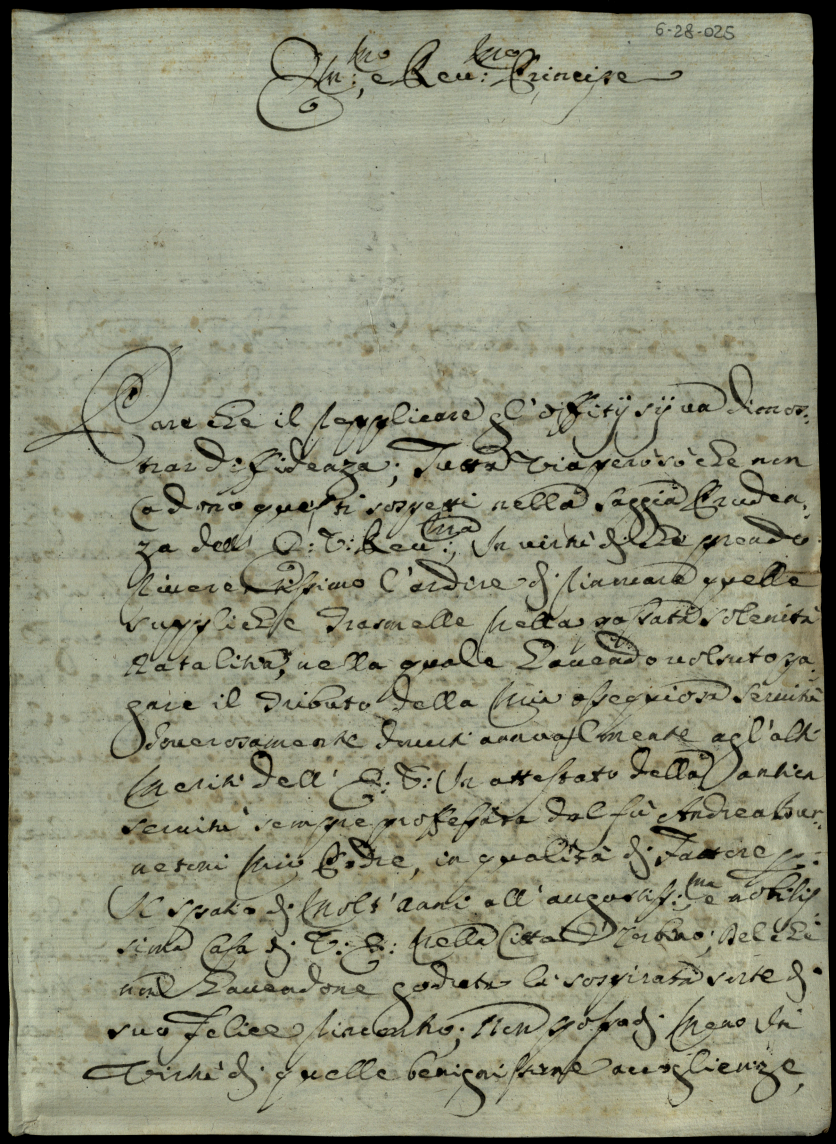 6-28-025
Em:mo, e Reu:mo Principe
Pare che il supplicare gl'offitij sij un dimos:
trar difidenza; Tutta via però sò che non
cadono questi sospetti nella saggia Pruden:
za dell' E: V: Reu:ma, In virtù di che prendo
riuerentissimo l'ardire di rinouare quelle
suppliche trasmesse nella passata solenità
Natalitia, nella quale hauendo uolsuto pa:
gare il tributo della mia ossequiosa seruitù
douerosamente douuti annualmente agl'alti
meriti dell' E: V: In attestato della antica
seruitù sempre professata dal fù Andrea
mio Padre, in qualità di Fattore p:
il spatio di molt'anni all'augustiss:ma e nobilis
sima Casa di V: E: nella Città d'Vrbino; Del che
non hauendone goduta la sospirata sorte di
suo felice rincontro; Non posso di meno in
virtù di quelle benignissime accoglienze,